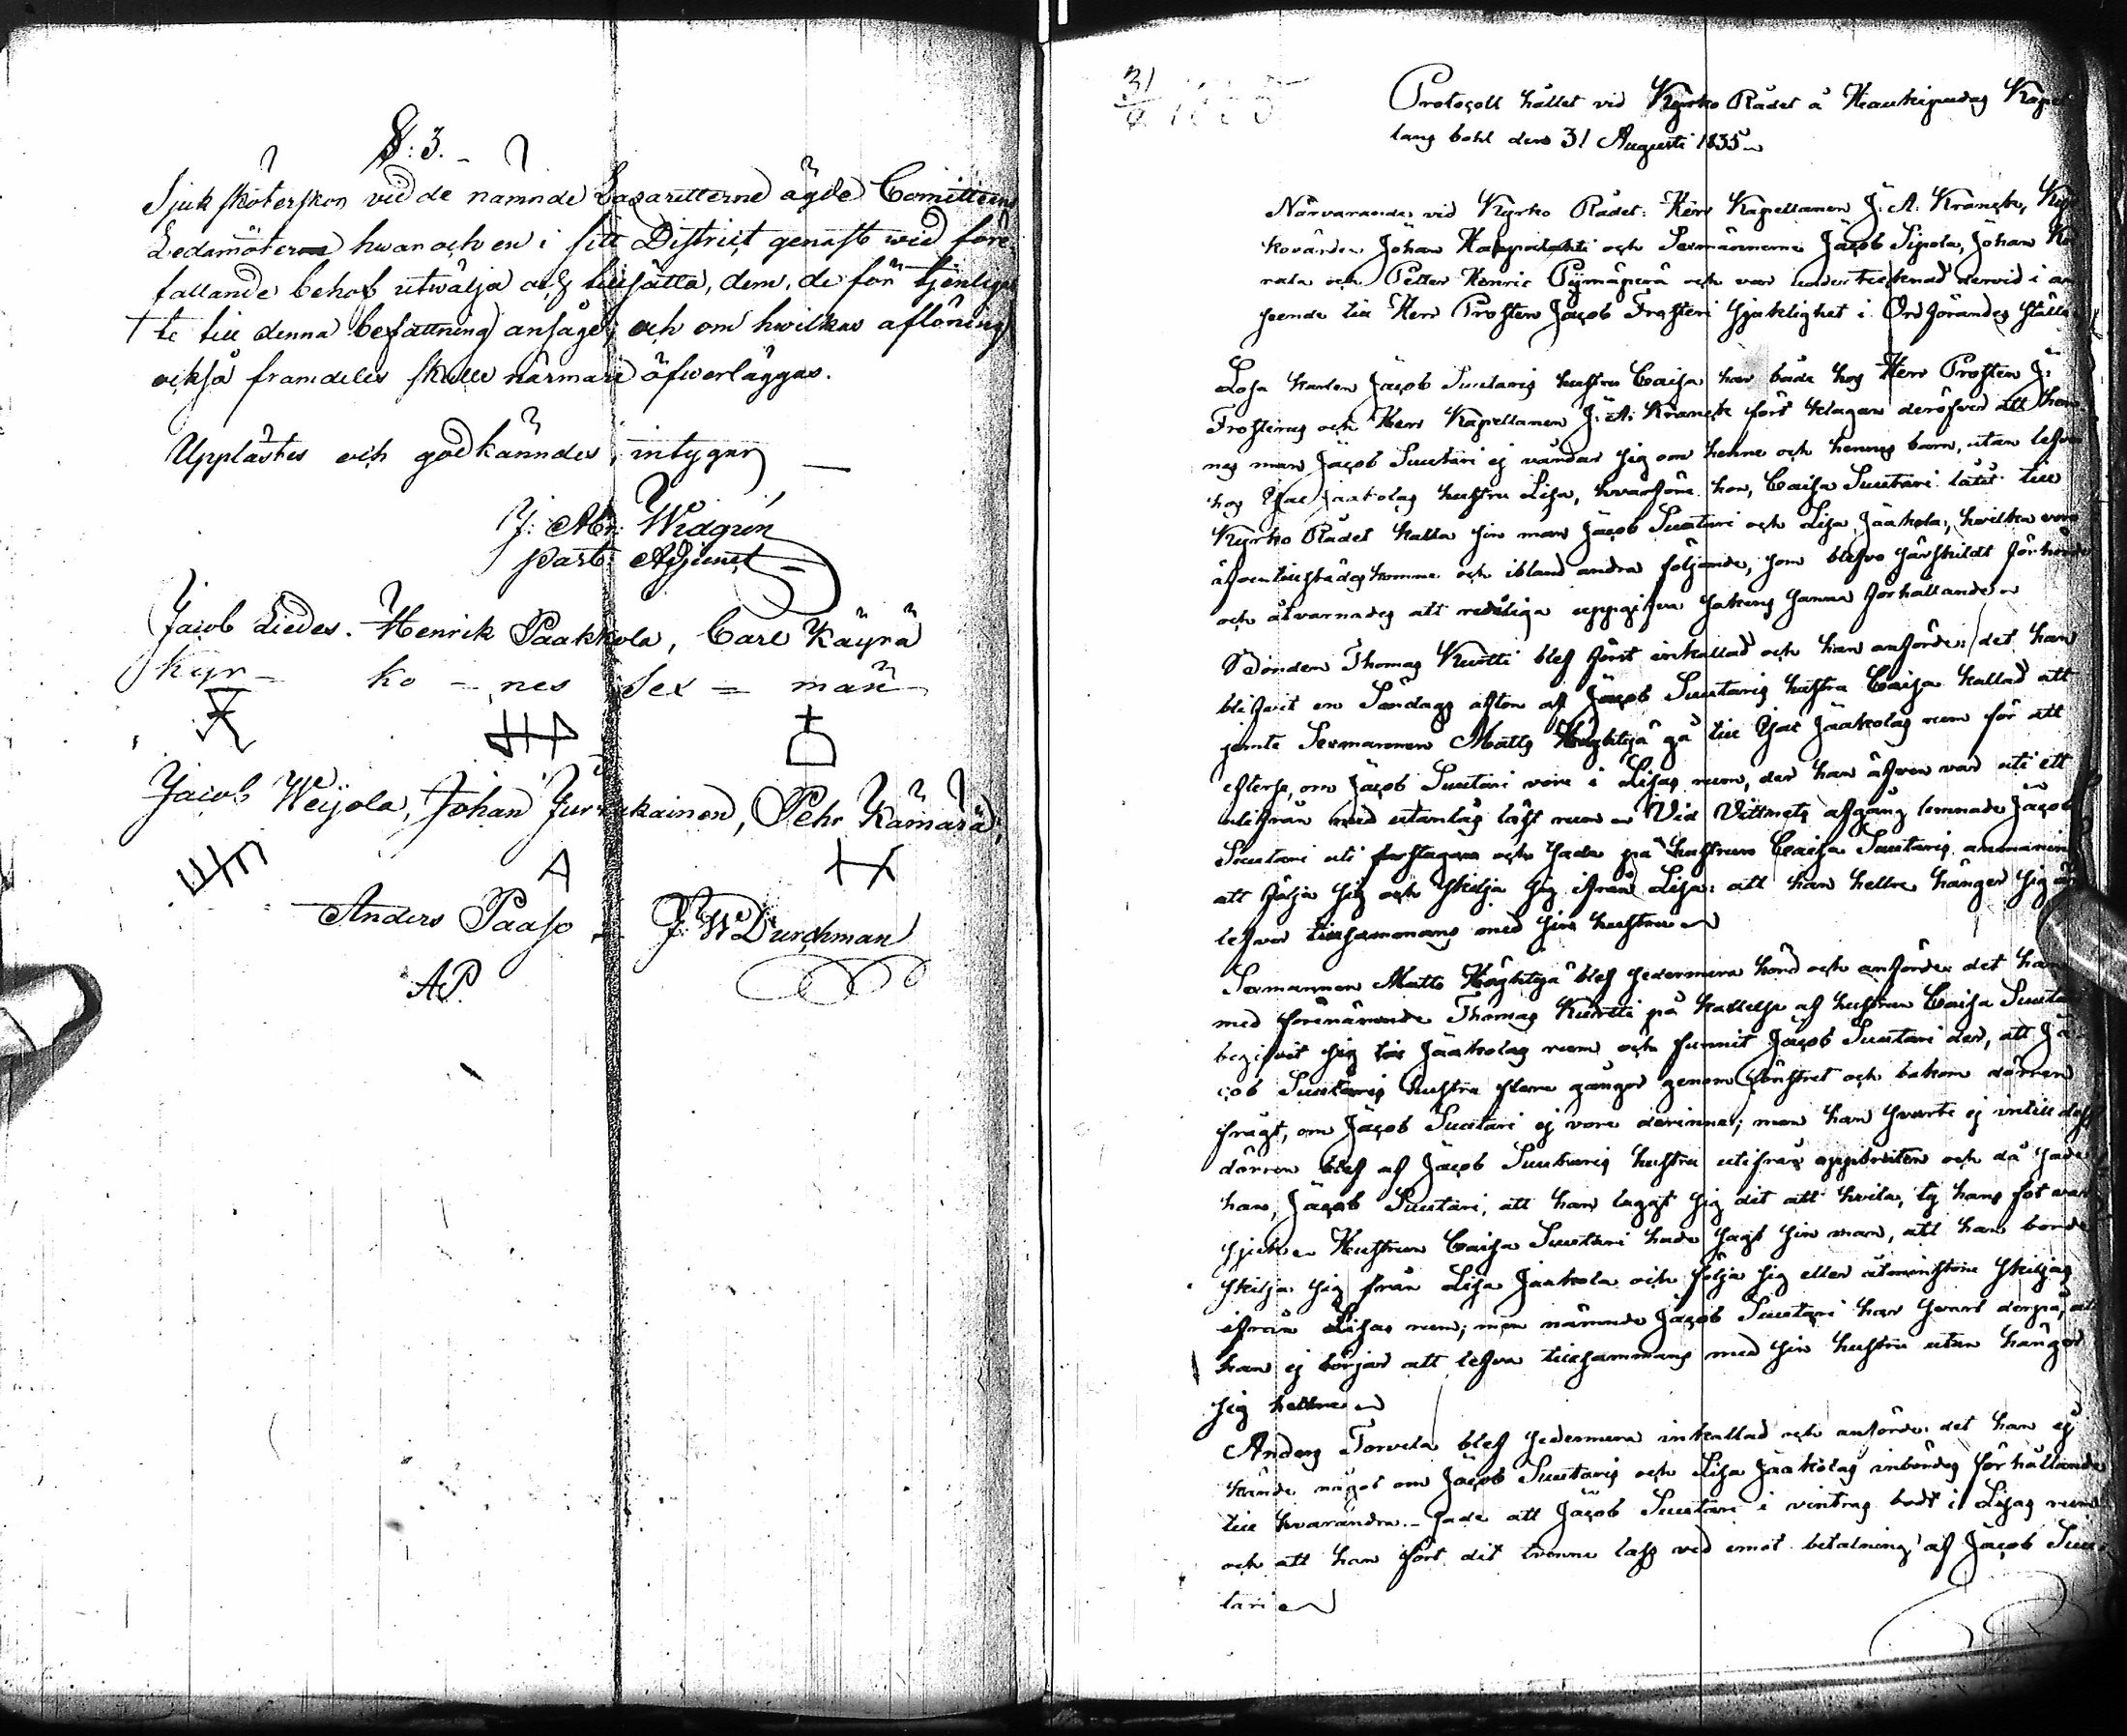 §: 3.
Sjuksköterskor vid de nämnde Lazaretterne ägde Comitteens
Ledamöter hwar och en i sitt District genast wid före-
fallande behof utwälja och tillsätta, dem, de för tjenliga-
te till denna befattning ansåge; och om hwilkas aflöning
också framdeles skulle närmare öfwerläggas.
Upplästes och godkändes, intygar
J: Abr: Widgrén
Past: Adjunct
Jacob Liedes. Henrik Paakkola, Carl Käyrä
Kyr - ko - nes Sex = män
Jacob Weijola, Johan Jurvakainen, Pehr Kämärä,
Anders Paaso J: W Durchman
AP.
31/8 1835
Protocoll hållet vid Kyrko Rådet å Haukipudas Kapel-
lans bohl den 31 Augusti 1835
Närvarande vid Kyrko Rådet: Herr Kapellanen J: A: Kranck, Kyr
kovärden Johan och Sexmännerna Jacob Sipola, Johan
och Petter Henric Pyymäperä och var undertecknad dervid i an
seende till Herr Prosten Jacob Frosteri sjuklighet i Ordförandes ställe
Losa karlen Jacob Suutaris hustru Caisa har både hos Herr Prosten J:
Frosterus och Herr Kapellanen J: A: Kranck fört klagan deröfver att hen-
nes man Jacob Suutari ej vårdar sig om henne och hennes barn, utan lefver
hos Jaakolas hustru Lisa, hvarföre hon, Caisa Suutari låtit till
Kyrko Rådet kalla sin man Jacob Suutari och Lisa Jaakola, hvilka voro
äfven tillstädeskomne och ibland andra följande, som blefvo särskildt förhörde
och åtvarnades att redeliga uppgifva sakens sanna förhållande
Bonden Thomas Kurtti blef först inkallad och han anförde: det han
blifvit en Söndags afton af Jacob Suutaris hustru Caisa kallad att
jemte Sexmannen Matts gå till Jaakolas rum för att
efterse, om Jacob Suutari vore i Lisas rum, der han äfven var uti ett
utifrån med utanlås låst rum Vid Vittnets afgång lemnade Jacob
Suutari uti och sade på hustrun Caisa Suutaris anmaning
att följa sig och skilja sig ifrån Lisa: att han hellre hänger sig än
lefver tillsammans med sin hustru
Sexmannen Matts blef sedermera hörd och anförde det han
med förenämnde Thomas Kurtti på kallelse af hustrun Caisa Suutari
begifvit sig till Jaakolas rum och funnit Jacob Suutari der, att Ja-
cob Suutaris hustru flere gånger genom fönstret och bakom dörren
frågt, om Jacob Suutari ej vore derinne; men han svarte ej intill dess
dörren blef af Jacob Suutaris hustru utifrån uppbruten och då sade
han, Jacob Suutari, att han laggt sig dit att hvila, ty hans fot var
sjuk Hustrun Caisa Suutari hade sagt sin man, att han borde
skilja sig från Lisa Jaakola och följa sig eller åtminstone skiljas
ifrån Lisas rum; men nämnde Jacob Suutari har svart derpå, att
han ej börjar att lefva tillsammans med sin hustru utan hänger
sig hellre
Anders Torvela blef sedermera inkallad och anförde: det han ej
kände något om Jacob Suutaris och Lisa Jaakolas inbördes förhållande
till hvarandra. Sade att Jacob Suutari i vintras bodt i Lisas rum
och att han fört dit tvenne lass ved emot betalning af Jacob Suu-
tari